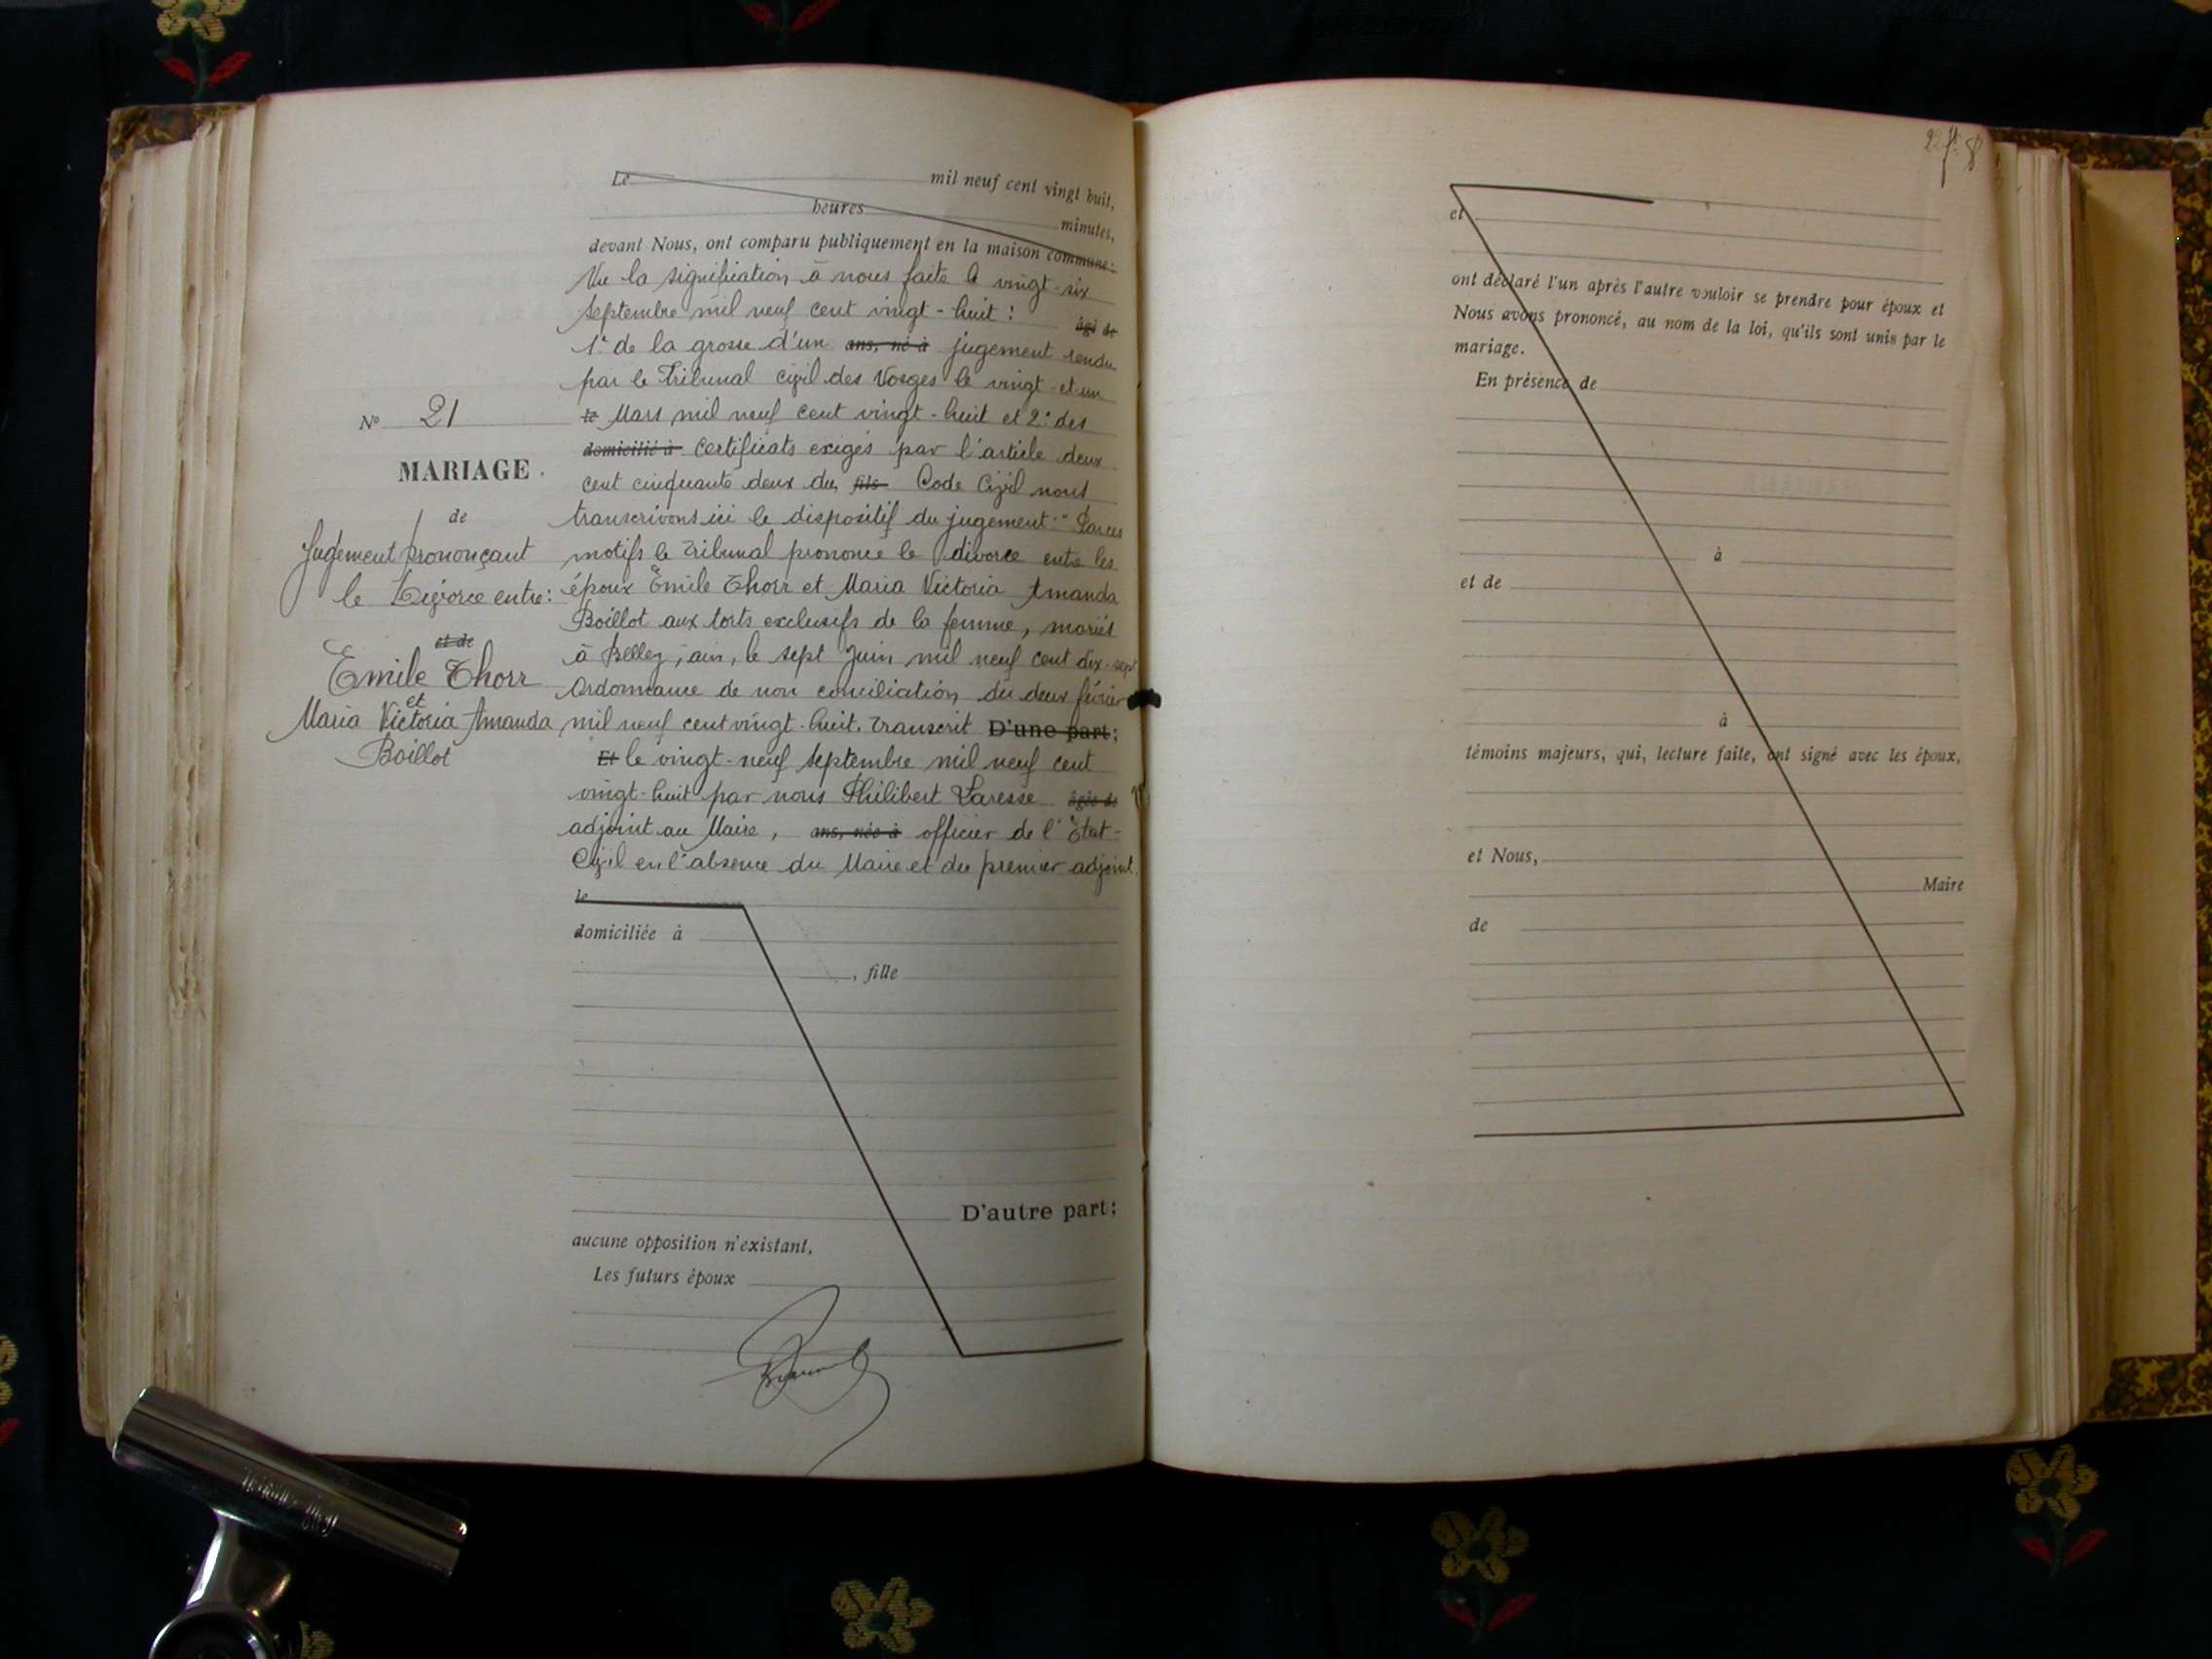 Le mil neuf cent vingt huit,
heures minutes,
devant Nous, ont comparu publiquement en la maison commune:
Vu la signification à nous faite le vingt-six
Septembre mil neuf cent vingt-huit: âgé de
1° de la grosse d'un ans, né à jugement rendu
par le Tribunal civil des Vosges le vingt-et-un
le Mars mil neuf cent vingt-huit et 2° des
domicilié à certificats exigés par l'article deux
cent cinquante deux du fils Code Civil nous
transcrivons ici le dispositif du jugement "Par ces
motifs le Tribunal prononce le divorce entre les
époux Emile Thorr et Maria Victoria Amanda
Boillot aux torts exclusifs de la femme, mariés
à Belley, ain, le sept Juin mil neuf cent dix-sept
Ordonnance de non conciliation du deux février
mil neuf cent vingt-huit. Transcrit D'une part;
Et le vingt-neuf Septembre mil neuf cent
vingt-huit par nous Philibert Laresse âgée de
adjoint au Maire, ans, née à officier de l'Etat-
Civil en l'absence du Maire et du premier adjoint.
le
domiciliée à
, fille
D'autre part;
aucune opposition n'existant,
Les futurs époux
N° 21
MARIAGE.
de
Jugement prononçant
le Divorce entre:
et de
Emile Thorr
et
Maria Victoria Amanda
Boillot
et
ont déclaré l'un après l'autre vouloir se prendre pour époux et
Nous avons prononcé, au nom de la loi, qu'ils sont unis par le
mariage.
En présence de
à
et de
à
témoins majeurs, qui, lecture faite, ont signé avec les époux,
et Nous,
Maire
de